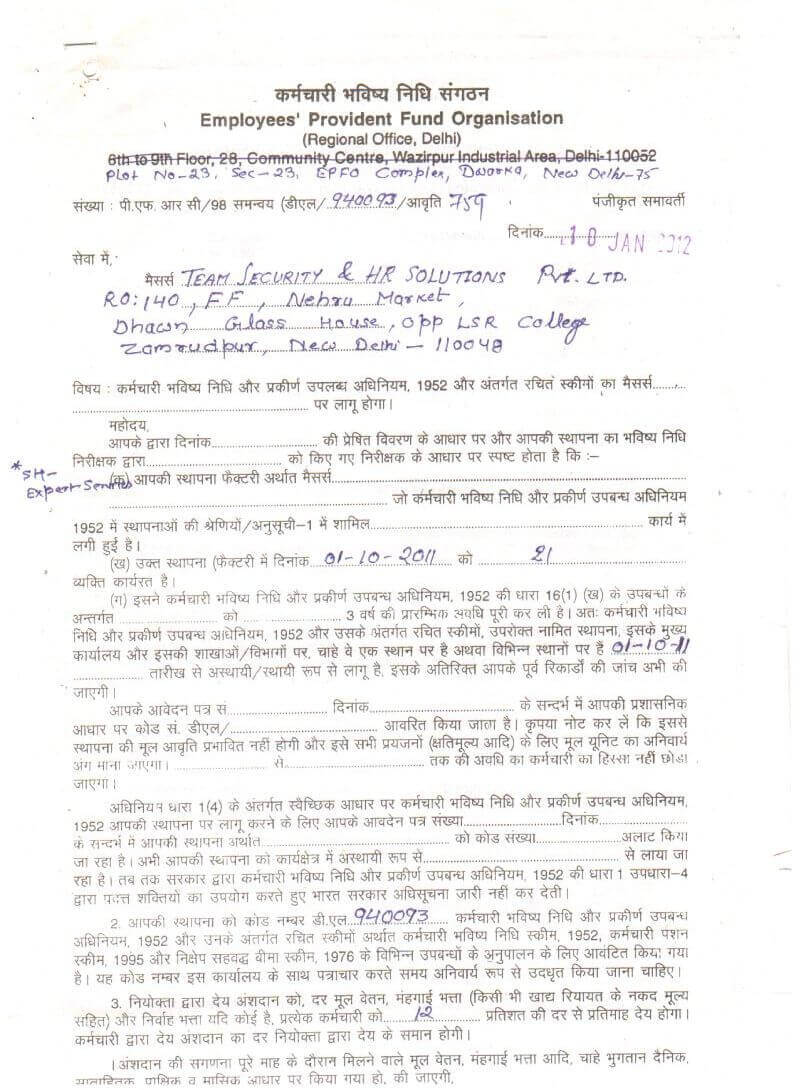 कर्मचारी भविष्य निधि संगठन
Employees' Provident Fund Organisation
(Regional Office, Delhi)
6th to 9th Floor, 28, Community Centre, Wazirpur Industrial Area, Delhi-110052
Plot No-23, Sec-23, EPFO Complex, Dwarka, New Delhi-75
संख्या : पी.एफ. आर सी/98 समन्वय (डीएल/ 940093 /आवृति 759 पंजीकृत समावर्ती
दिनांक 10 JAN 2012
सेवा में,
मैसर्स TEAM SECURITY & HR SOLUTIONS Pvt. LTD.
RO: 140, FF, Nehru Market,
Dhawn Glass House, Opp LSR College
Zamrudpur, New Delhi - 110048
विषय : कर्मचारी भविष्य निधि और प्रकीर्ण उपलब्ध अधिनियम, 1952 और अंतर्गत रचित स्कीमों का मैसर्स.........
.................... पर लागू होगा।
महोदय,
आपके द्वारा दिनांक.................... की प्रेषित विवरण के आधार पर और आपकी स्थापना का भविष्य निधि
निरीक्षक द्वारा.................... को किए गए निरीक्षक के आधार पर स्पष्ट होता है कि :–
* SH-
Expert Services
(क) आपकी स्थापना फैक्टरी अर्थात मैसर्स....................
.................... जो कर्मचारी भविष्य निधि और प्रकीर्ण उपबन्ध अधिनियम
1952 में स्थापनाओं की श्रेणियों/अनुसूची–1 में शामिल.................... कार्य में
लगी हुई है।
(ख) उक्त स्थापना (फेक्टरी में दिनांक 01-10-2011 को 21
व्यक्ति कार्यरत है।
(ग) इसने कर्मचारी भविष्य निधि और प्रकीर्ण उपबन्ध अधिनियम, 1952 की धारा 16(1) (ख) के उपबन्धों के
अन्तर्गत .................... को .................... 3 वर्ष की प्रारम्भिक अवधि पूरी कर ली है। अतः कर्मचारी भविष्य
निधि और प्रकीर्ण उपबन्ध अधिनियम, 1952 और उसके अंतर्गत रचित स्कीमों, उपरोक्त नामित स्थापना, इसके मुख्य
कार्यालय और इसकी शाखाओं/विभागों पर, चाहे वे एक स्थान पर है अथवा विभिन्न स्थानों पर हैं 01-10-11
.................... तारीख से अस्थायी/स्थायी रूप से लागू है, इसके अतिरिक्त आपके पूर्व रिकार्डों की जांच अभी की
जाएगी।
आपके आवेदन पत्र सं. .................... दिनांक.................... के सन्दर्भ में आपकी प्रशासनिक
आधार पर कोड सं. डीएल/.................... आवरित किया जाता है। कृपया नोट कर लें कि इससे
स्थापना की मूल आवृति प्रभावित नहीं होगी और इसे सभी प्रयजनों (क्षतिमूल्य आदि) के लिए मूल यूनिट का अनिवार्य
अंग माना जाएगा। .................... से.................... तक की अवधि का कर्मचारी का हिस्सा नहीं छोडा
जाएगा।
अधिनियम धारा 1(4) के अंतर्गत स्वैच्छिक आधार पर कर्मचारी भविष्य निधि और प्रकीर्ण उपबन्ध अधिनियम,
1952 आपकी स्थापना पर लागू करने के लिए आपके आवदेन पत्र संख्या....................दिनांक....................
के सन्दर्भ में आपकी स्थापना अर्थात.................... को कोड संख्या....................अलाट किया
जा रहा है। अभी आपकी स्थापना को कार्यक्षेत्र में अस्थायी रूप से.................... से लाया जा
रहा है। तब तक सरकार द्वारा कर्मचारी भविष्य निधि और प्रकीर्ण उपबन्ध अधिनियम, 1952 की धारा 1 उपधारा–4
द्वारा पदत्त शक्तियों का उपयोग करते हुए भारत सरकार अधिसूचना जारी नहीं कर देती।
2. आपकी स्थापना को कोड नम्बर डी.एल. 940093 कर्मचारी भविष्य निधि और प्रकीर्ण उपबन्ध
अधिनियम, 1952 और उनके अंतर्गत रचित स्कीमों अर्थात कर्मचारी भविष्य निधि स्कीम, 1952, कर्मचारी पशन
स्कीम, 1995 और निक्षेप सहवद्ध बीमा स्कीम, 1976 के विभिन्न उपबन्धों के अनुपालन के लिए आवंटित किया गया
है। यह कोड नम्बर इस कार्यालय के साथ पत्राचार करते समय अनिवार्य रूप से उदधृत किया जाना चाहिए।
3. नियोक्ता द्वारा देय अंशदान को, दर मूल वेतन, मंहगाई भत्ता (किसी भी खाद्य रियायत के नकद मूल्य
सहित) और निर्वाह भत्ता यदि कोई है, प्रत्येक कर्मचारी को 12 प्रतिशत की दर से प्रतिमाह देय होगा।
कर्मचारी द्वारा देय अंशदान का दर नियोक्ता द्वारा देय के समान होगी।
।अंशदान की सगणना पूरे माह के दौरान मिलने वाले मूल वेतन, मंहगाई भत्ता आदि, चाहे भुगतान दैनिक,
साप्ताहितक, पाक्षिक व मासिक आधार पर किया गया हो, की जाएगी,